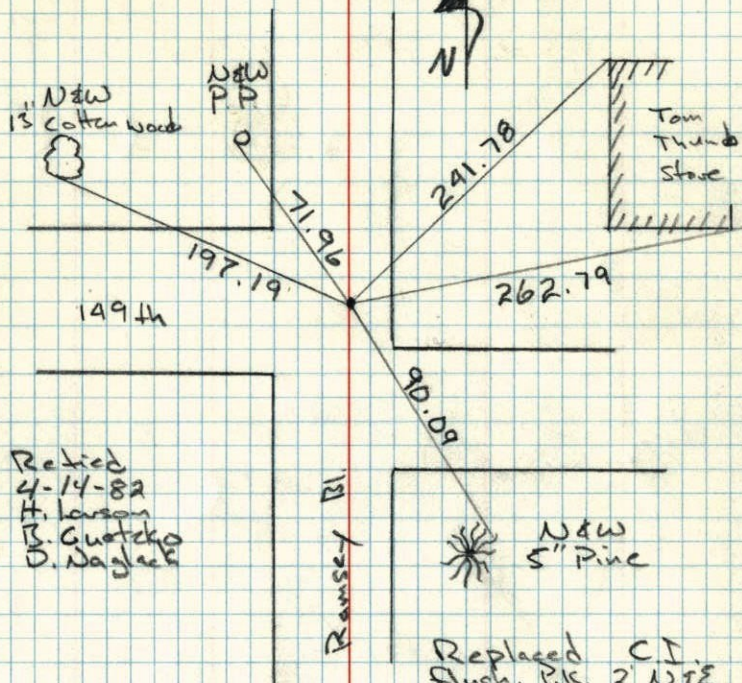 N
N&W
P.P.
N&W
13" Cotton wood
Tom
Thumb
Store
241.78
71.96
197.19
262.79
149th
90.09
Retied
4-14-82
H. Larson
B. Guetzko
D. Naglack
Ramsey Bl.
N&W
5" Pine
Replaced C.I.
Flush. P.K. 2' N&S